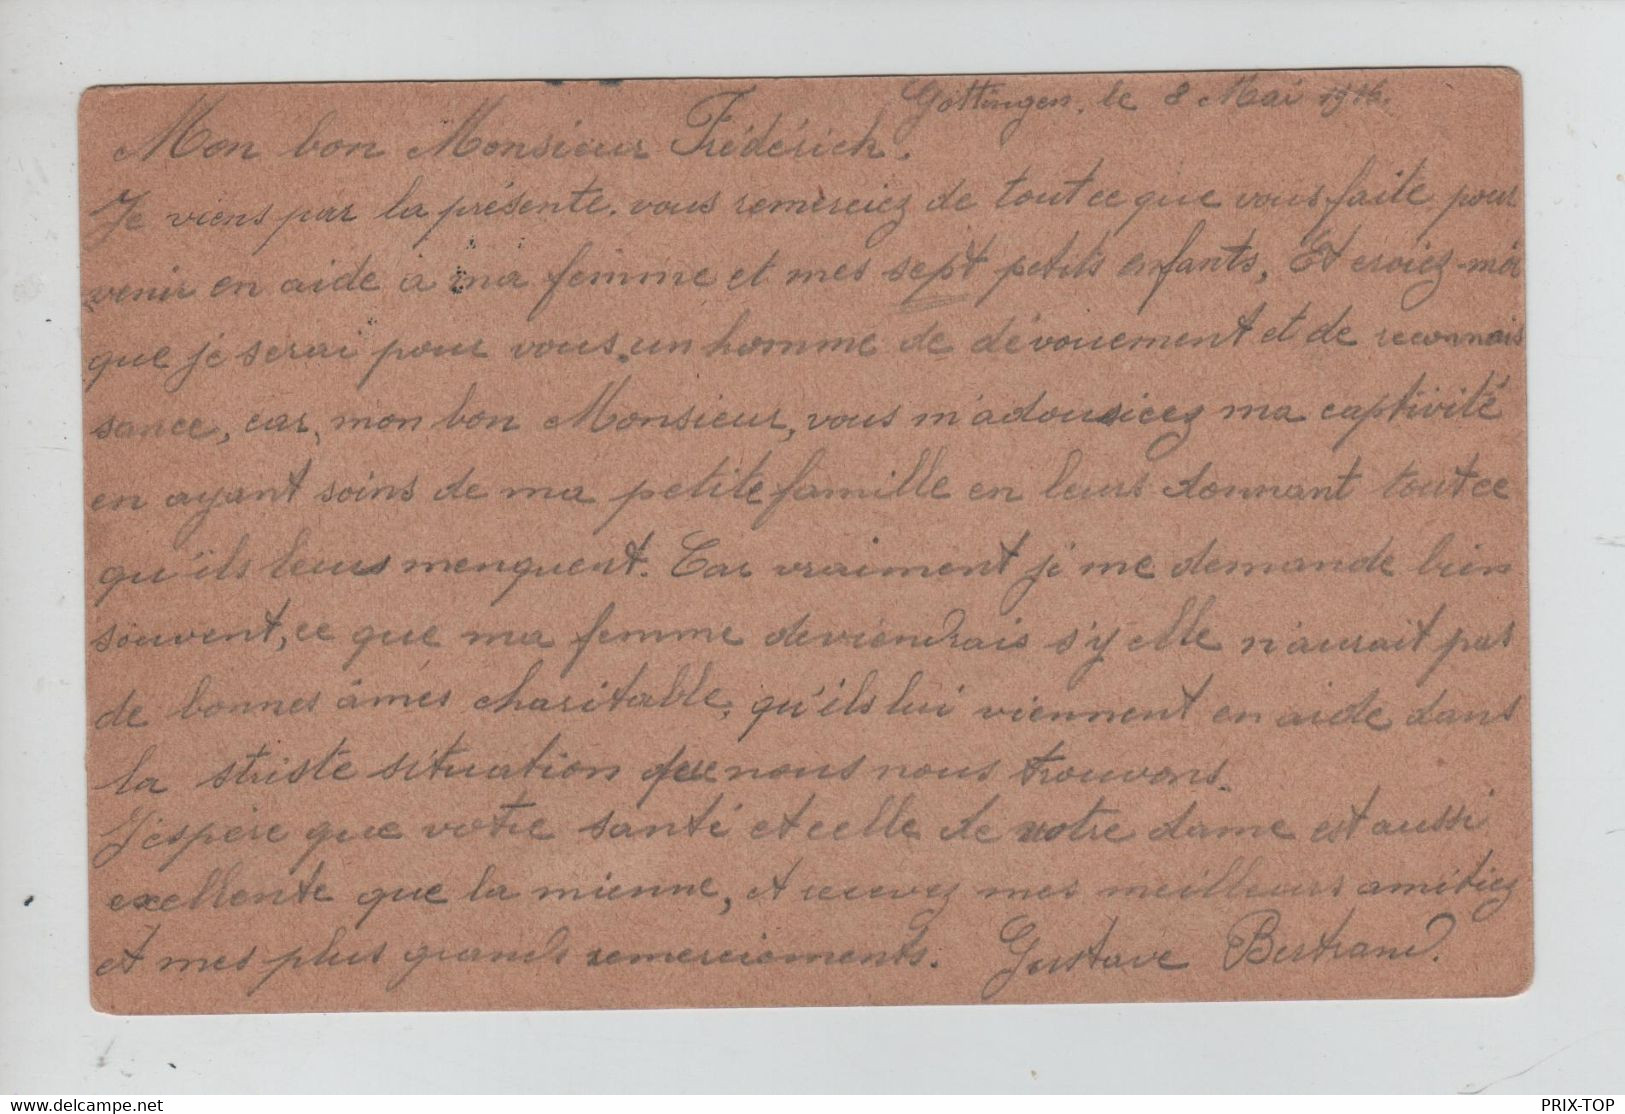 Gottingen, le 8 Mai 1916.
Mon bon Monsieur Frédérich.
Je viens par la présente. vous remerciez de tout ce que vous faite pour
venir en aide à ma femme et mes sept petits enfants, Et croiez-moi
que je serai pour vous un homme de dévouement et de reconnais
sance, car, mon bon Monsieur, vous m'adousicez ma captivité
en ayant soins de ma petite famille en leurs donnant tout ce
qu'ils leurs menquent. Car vraiment je me demande bien
souvent, ce que ma femme deviendrais s'y elle n'aurait pas
de bonnes âmes charitable, qu'ils lui viennent en aide dans
la striste situation que nous nous trouvons.
J'espère que votre santé et celle de votre dame est aussi
exellente que la mienne, et recevez mes meilleurs amitiez
et mes plus grands remerciements. Gustave Bertrand.
PRIX-TOP
www.delcampe.net